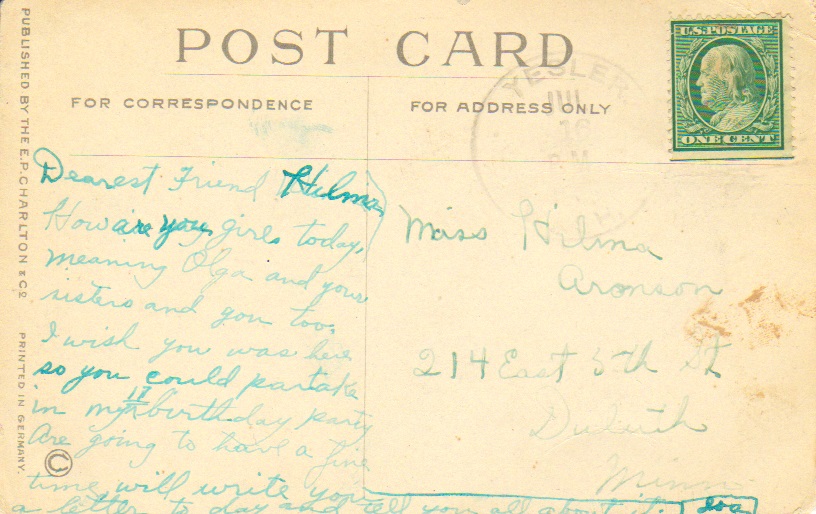 POST CARD
FOR CORRESPONDENCE
FOR ADDRESS ONLY
U.S. POSTAGE
ONE CENT
YESLER
JUL
16
P.M.
PUBLISHED BY THE E.P. CHARLTON & CO. PRINTED IN GERMANY.
©
Dearest Friend Hilma
How are you girls today,
meaning Olga and your
sisters and you too.
I wish you was here
so you could partake
in my 17 birthday party
Are going to have a fine
time will write you
a letter to day and tell you all about it. Eva
Miss Hilma
Aronson
214 East 5th St
Duluth
Minn